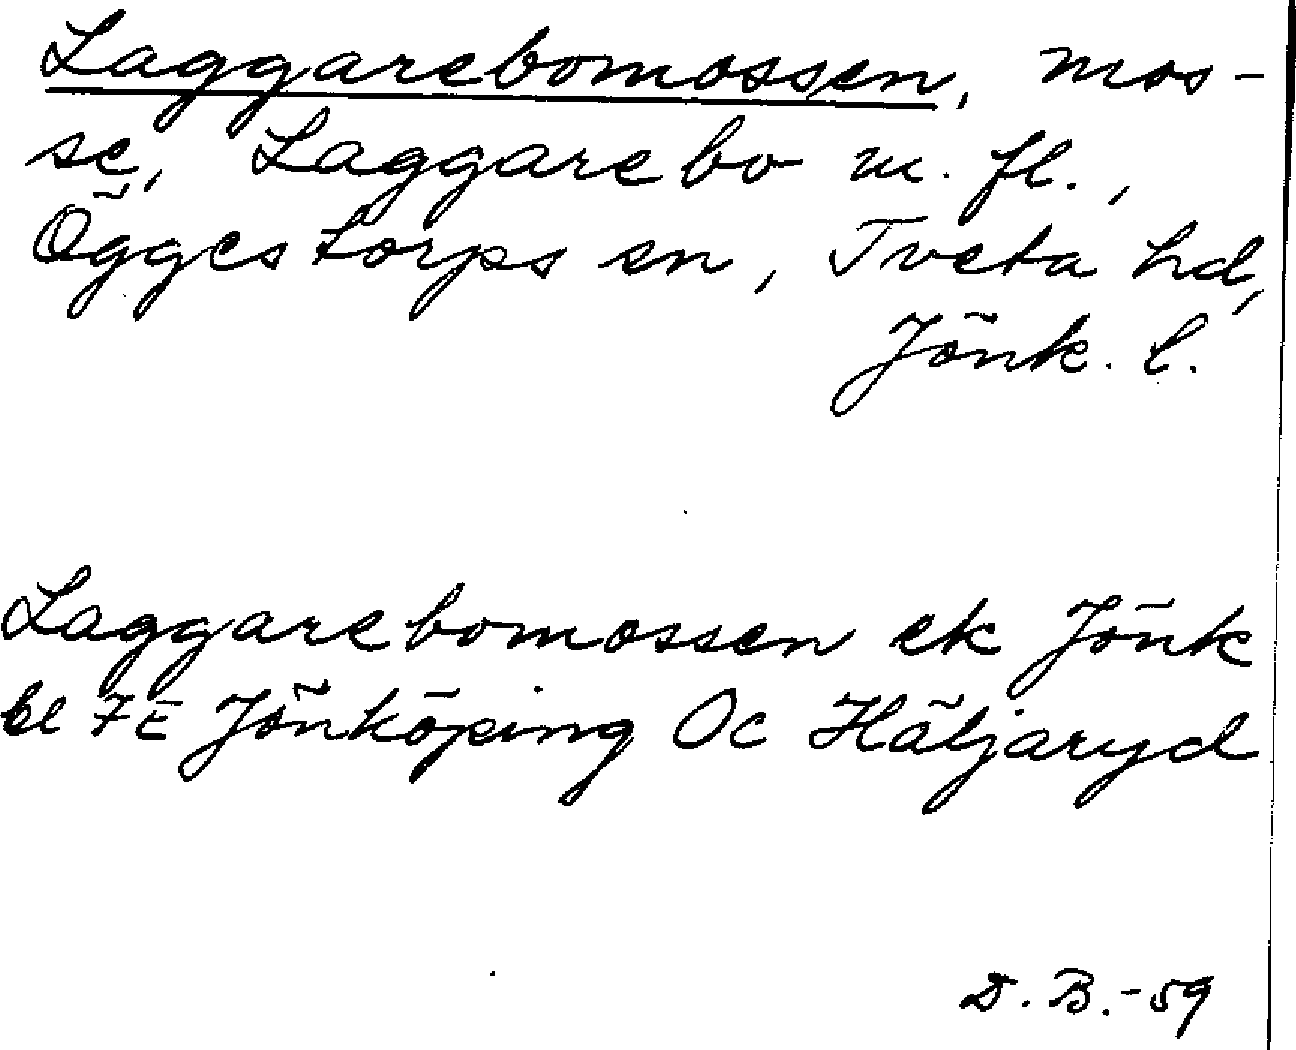 Laggarebomossen, mos-
se, Laggarebo m. fl.,
Öggestorps sn, Tveta hd,
Jönk. l.
Laggarebomossen ek Jönk
bl 7E Jönköping Oc Häljaryd
D. B. -59